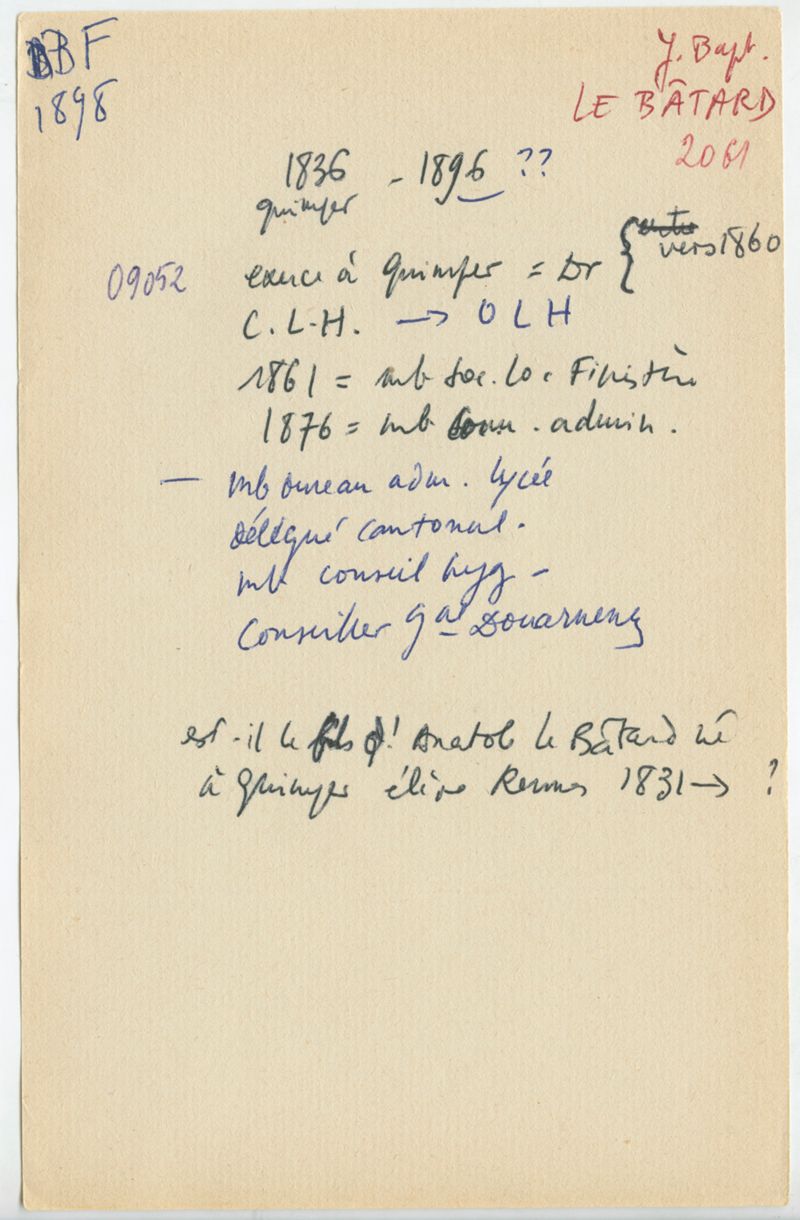 BF
1898
J. Bapt.
LE BÂTARD
2061
1836 - 1896 ??
Quimper
vers 1860
09052
exerce à Quimper = Dr
C.L.H. → OLH
1861 = mb Soc. loc Finistère
1876 = mb Comm. admin.
— mb bureau adm. Lycée
Délégué cantonal.
mb conseil hyg -
Conseiller Gal Douarnenez
est-il le fils d' Anatole le Bâtard né
à Quimper élève Rennes 1831 → ?